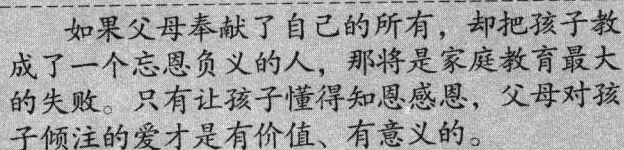 如果父母奉献了自己的所有，却把孩子教
成了一个忘恩负义的人，那将是家庭教育最大
的失败。只有让孩子懂得知恩感恩，父母对孩
子倾注的爱才是有价值、有意义的。